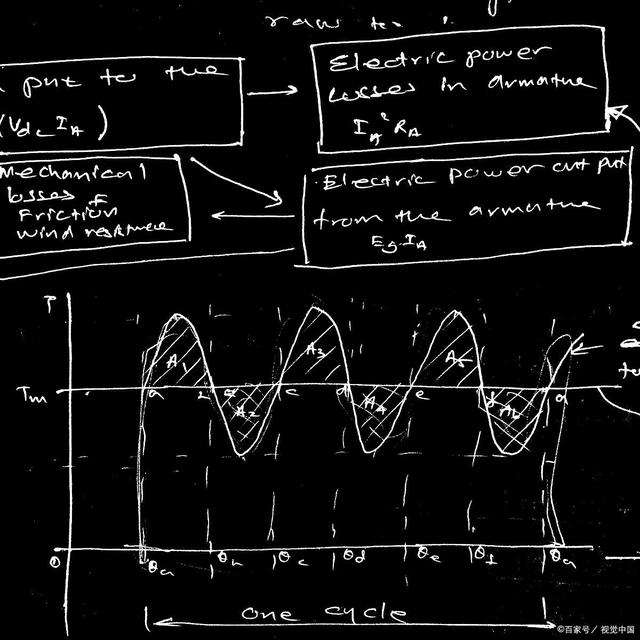 put to the
(Vdc IA)
Electric power
losses in armature
Ia² RA
Mechanical
losses
Friction
wind resistance
Electric power out put
from the armature
Eg.IA
T
A1
A3
A5
Tm
a
c
d
e
a
A2
A4
A6
0
θa
θb
θc
θd
θe
θf
θa
one cycle
©百家号/视觉中国